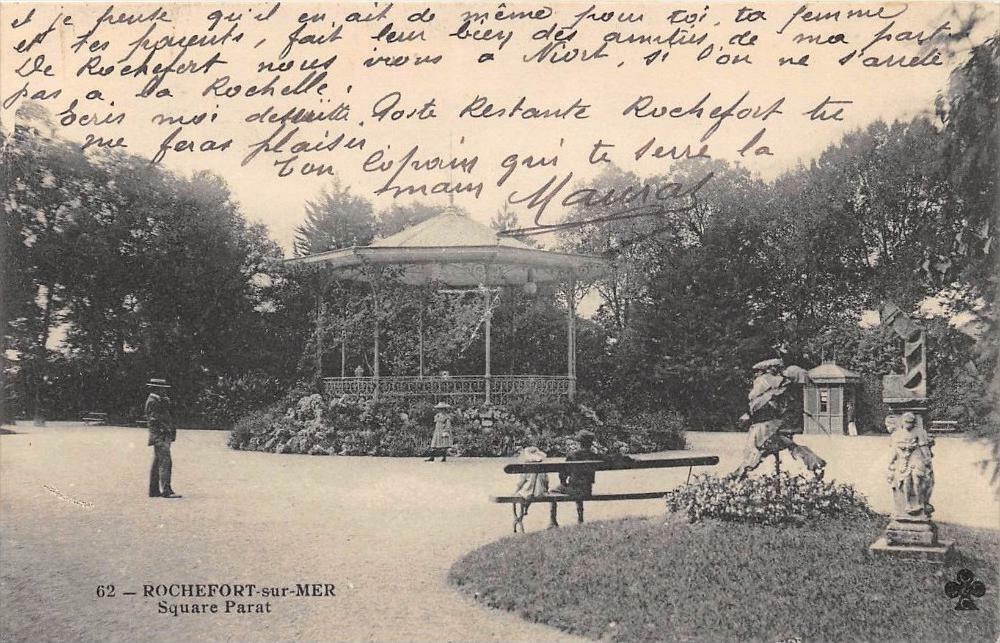 et je pense qu'il en ait de même pour toi, ta femme
et tes parents, fait leur bien des amitiés de ma part
De Rochefort nous irons a Niort, si l'on ne s'arrete
pas a la Rochelle.
Ecris moi de suite Poste Restante Rochefort tu
me feras plaisir
Ton Copain qui te serre la
main Mauras
62 — ROCHEFORT-sur-MER
Square Parat